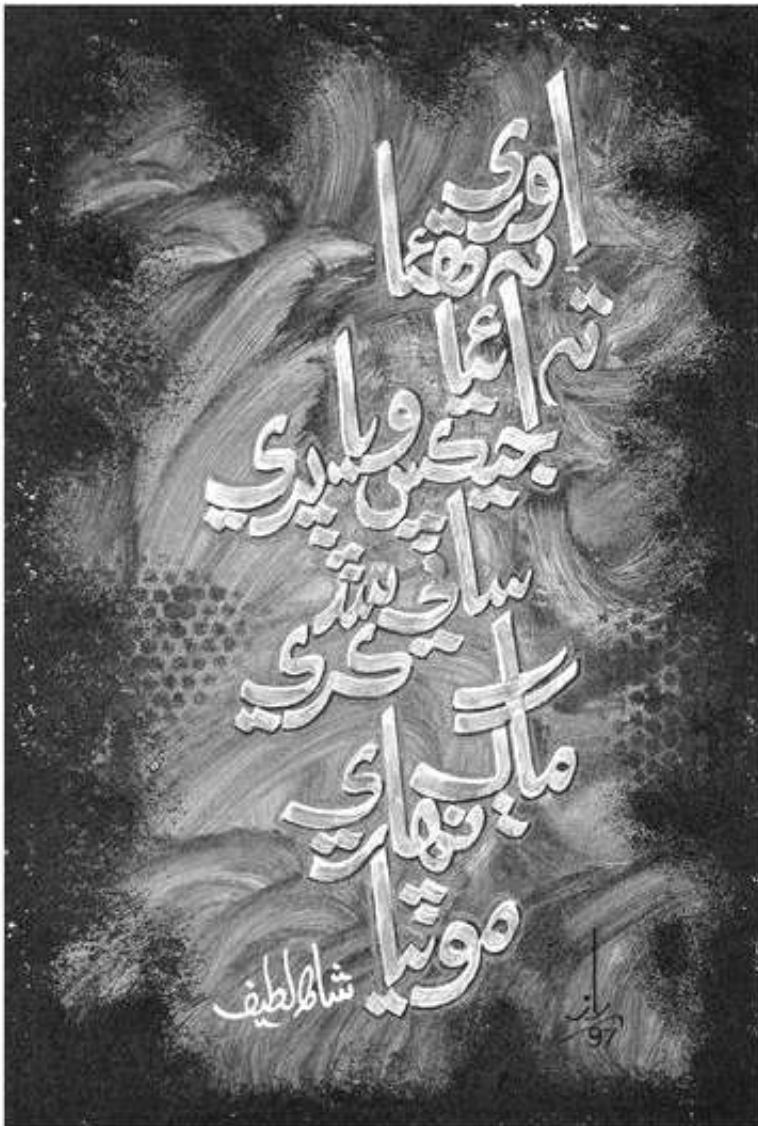 اِوري
نہ ٿئا
تہ ائيا
جيڪس ويا پري
ساٿي سڏ
ڪري
ماڳ
نهاري
موٽيا
شاھ لطيف
راز
97